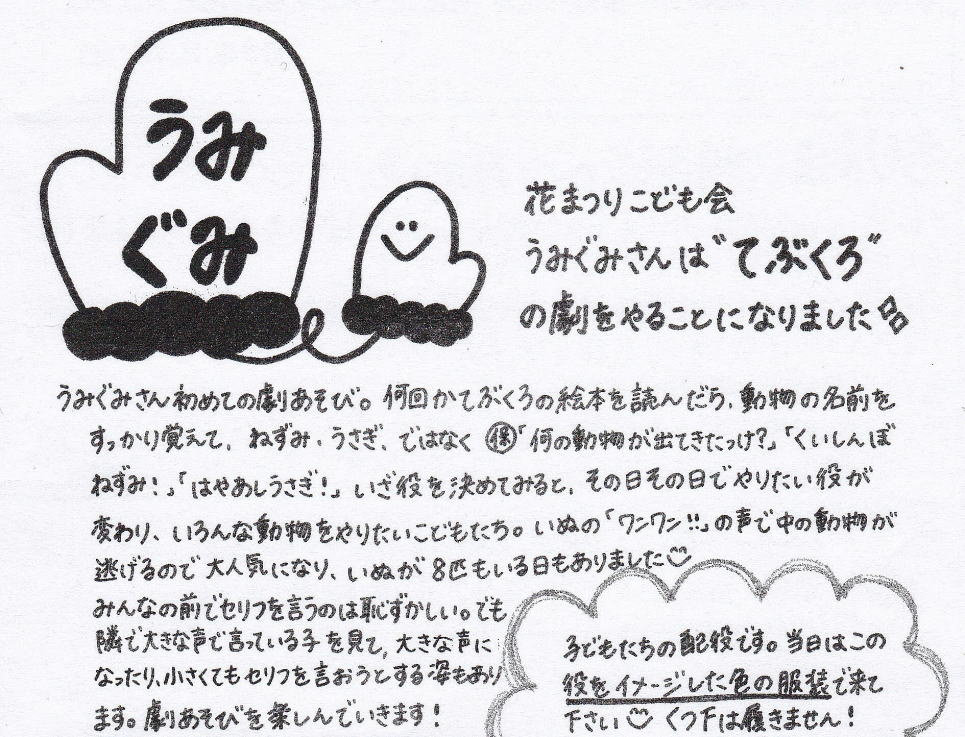 うみ
ぐみ
花まつりこども会
うみぐみさんは“てぶくろ”
の劇をやることになりました
うみぐみさん初めての劇あそび。何回かてぶくろの絵本を読んだら、動物の名前を
すっかり覚えて、ねずみ・うさぎ、ではなく ㊝「何の動物が出てきたっけ?」「くいしんぼ
ねずみ!」「はやあしうさぎ!」いざ役を決めてみると、その日その日でやりたい役が
変わり、いろんな動物をやりたいこどもたち。いぬの「ワンワン!!」の声で中の動物が
逃げるので大人気になり、いぬが8匹もいる日もありました
みんなの前でセリフを言うのは恥ずかしい。でも
隣で大きな声で言っている子を見て、大きな声に
なったり、小さくてもセリフを言おうとする姿もあり
ます。劇あそびを楽しんでいきます!
子どもたちの配役です。当日はこの
役をイメージした色の服装で来て
下さい くつ下は履きません!